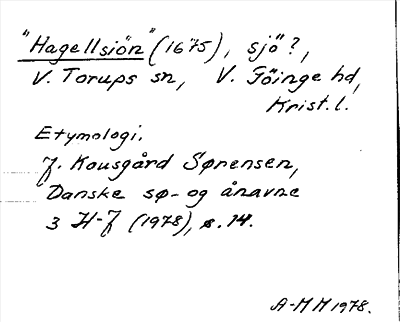 "Hagellsiön" (1675), sjö?,
V. Torups sn, V. Göinge hd,
Krist. l.
Etymologi.
J. Kousgård Sørensen,
Danske sø- og ånavne
3 H-J (1978), s. 14.
A-MH 1978.